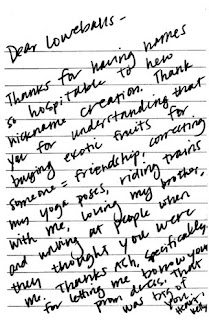 Dear Loweballs -
Thanks for having names
so hospitable to new
nickname creation. Thank
you for understanding that
buying exotic fruits for
someone = friendship! correcting
my yoga poses, riding trains
with me, loving my brother,
and waving at people when
they thought you were
me. Thanks Ash, specifically,
for letting me borrow your
prom dress. That
was big of
you.
Heart,
Kelly